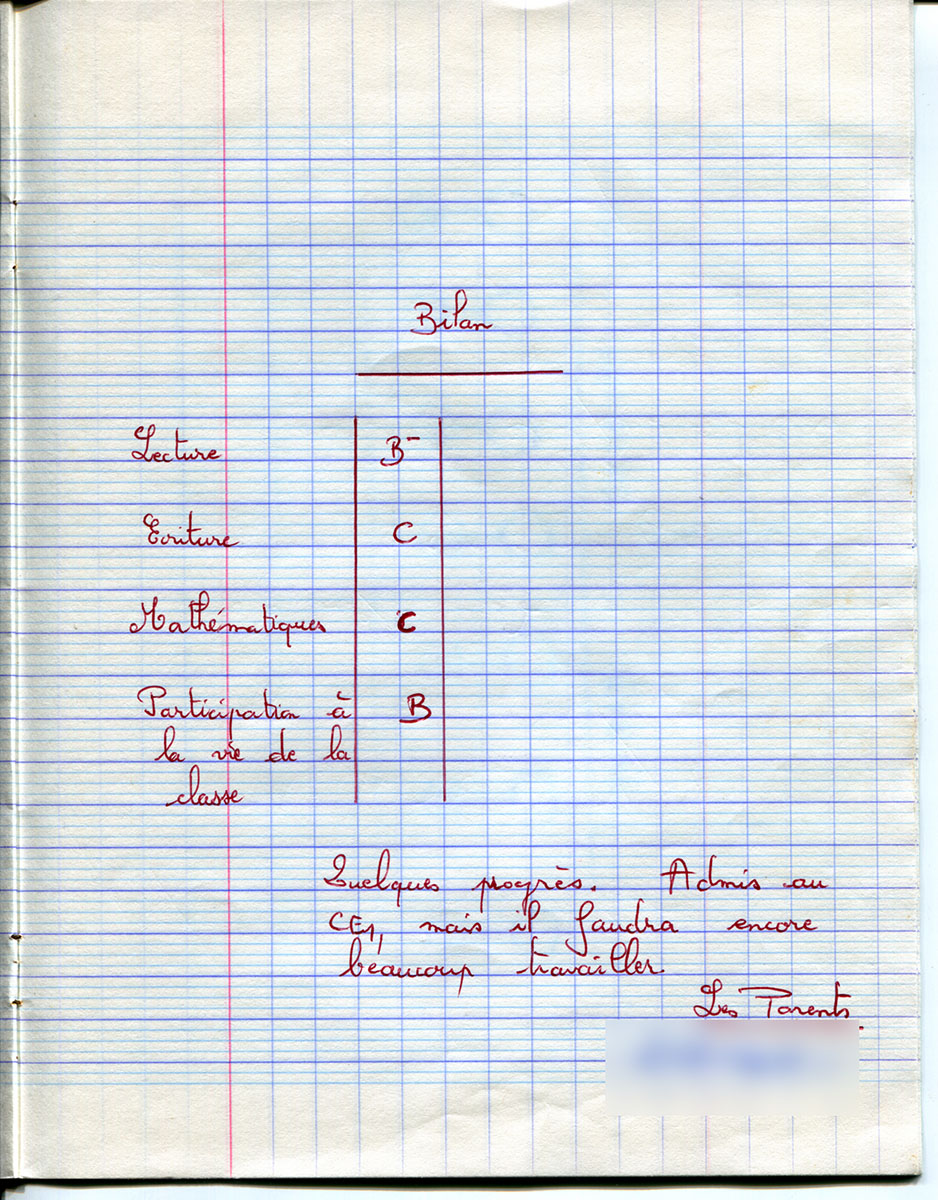 Bilan
Lecture B-
Ecriture C
Mathématiques C
Participation à B
la vie de la
classe
Quelques progrès. Admis au
CE1, mais il faudra encore
beaucoup travailler.
Les Parents